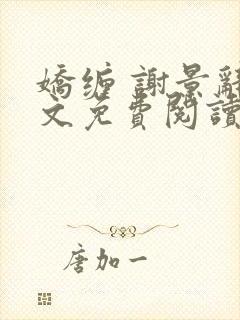 嬌纏 謝景辭
文免費閱讀
唐加一